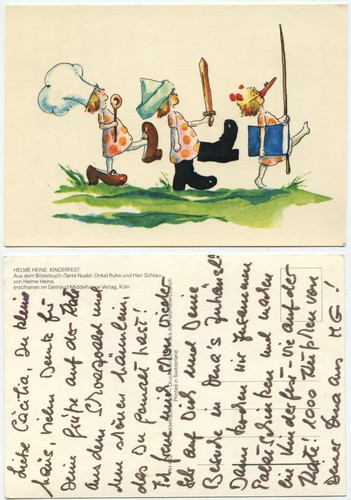 HELME HEINE: KINDERFEST
Aus dem Bilderbuch »Tante Nudel, Onkel Ruhe und Herr Schlau«
von Helme Heine,
erschienen im Gertraud Middelhauve Verlag, Köln
Printed in Switzerland
Liebe Cäcilia, Du kleine
Maus, vielen Dank für
Deine Grüße auf der Karte
aus dem Schwarzwald und
dem schönen Häuschen
das Du gemalt hast!
Ich freue mich schon wieder
sehr auf Dich und Deine
Besuche in Oma's Zuhause!
Dann werden wir zusammen
und machen
ein Kinderfest - wie auf der
Karte! 1000 Küßchen von
Deiner Omi aus MG!